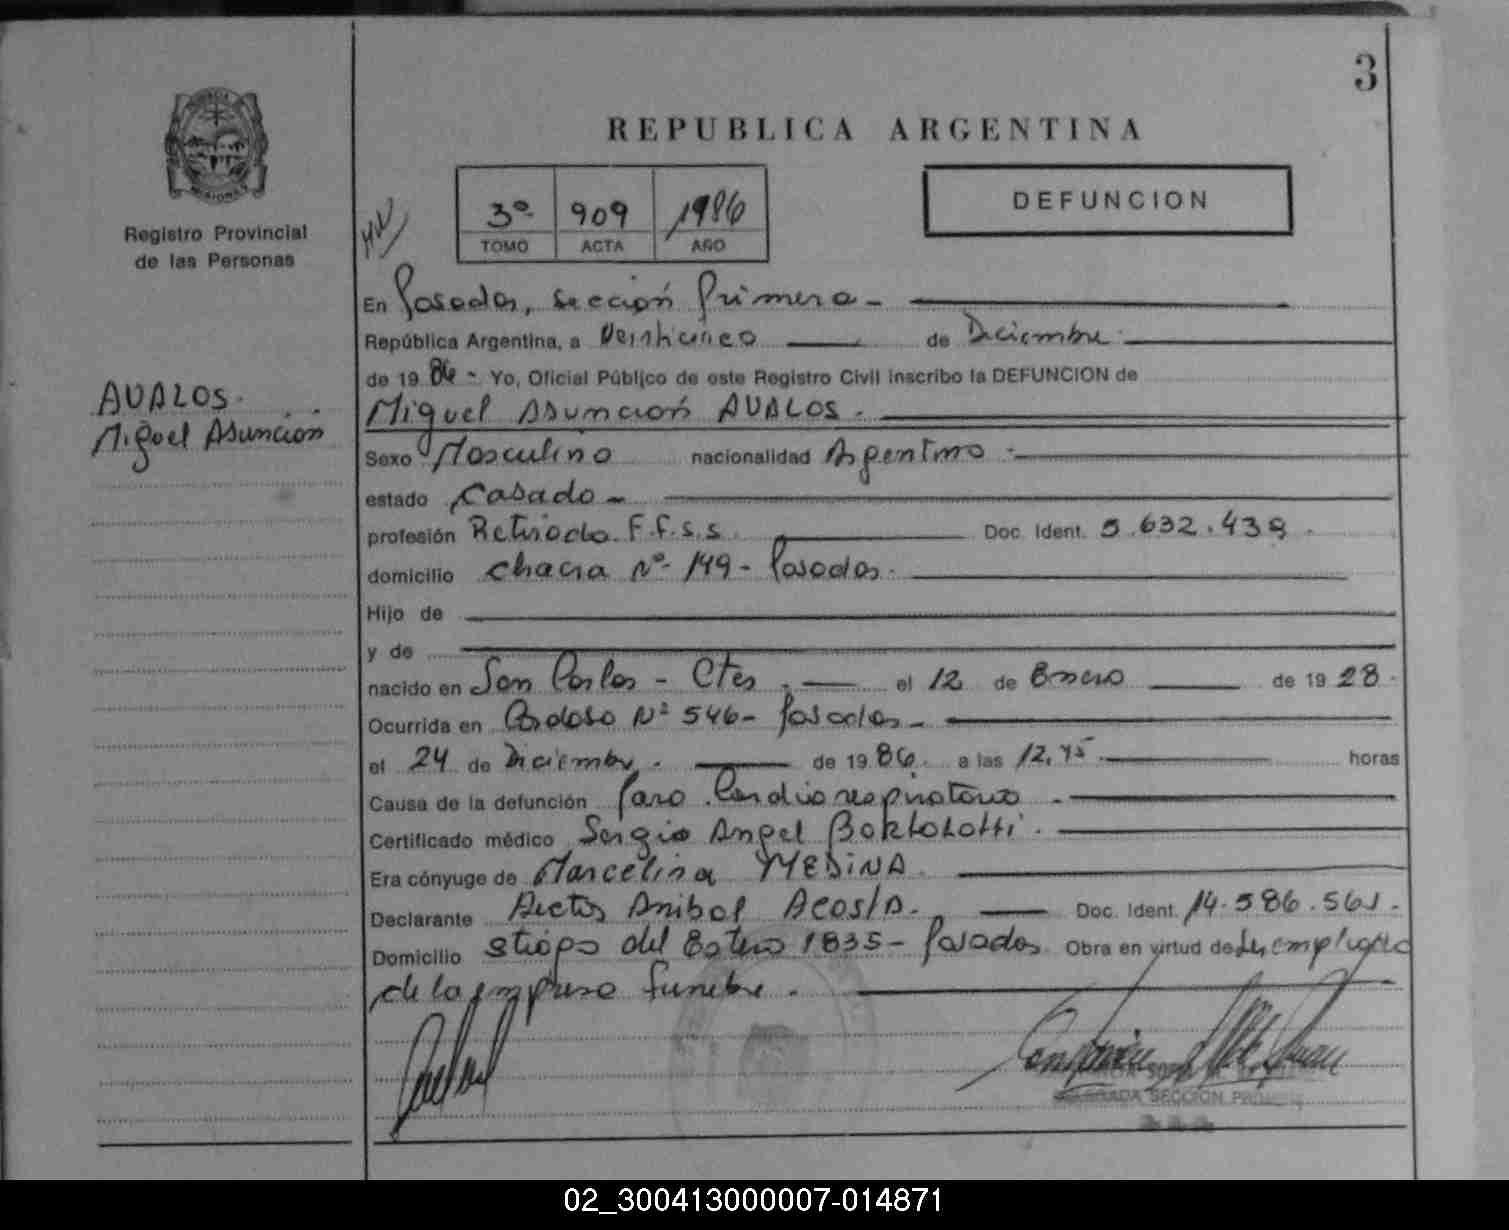 3
REPUBLICA ARGENTINA
Registro Provincial
de las Personas
3º 909 1986
TOMO ACTA AÑO
DEFUNCION
En Posadas, sección Primera
República Argentina, a Veinticinco de Diciembre
de 19 86 Yo, Oficial Público de este Registro Civil inscribo la DEFUNCION de
AVALOS.
Miguel Asunción
Miguel Asunción AVALOS.
Sexo Masculino nacionalidad Argentino
estado Casado
profesión Retirado F.F.S.S. Doc. Ident. 5.632.439
domicilio Chacra Nº 149 - Posadas.
Hijo de
y de
nacido en San Carlos - Ctes. el 12 de Enero de 19 28
Ocurrida en Cardoso Nº 546 - Posadas
el 24 de Diciembre de 19 86 a las 12,45 horas
Causa de la defunción Paro Cardiorespiratorio
Certificado médico Sergio Angel Bortolotti
Era cónyuge de Marcelina MEDINA
Declarante Anibal Acosta. Doc. Ident. 14.586.561
Domicilio del Estero 1835 - Posadas Obra en virtud de
de la empresa funebre.
SECCION
02_300413000007-014871